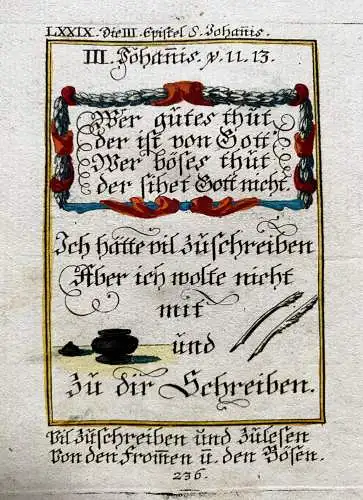 LXXIX. Die III. Epistel S. Johan̄is.
III. Johan̄is. v. 11. 13.
Wer gůtes thůt
der ist von Gott:
Wer böses thůt
der sihet Gott nicht.
Ich hätte vil zůschreiben
Aber ich wolte nicht
mit
und
Zů dir Schreiben.
Vil zůschreiben und zůlesen
Von den From̄en ů. den Bösen.
236.